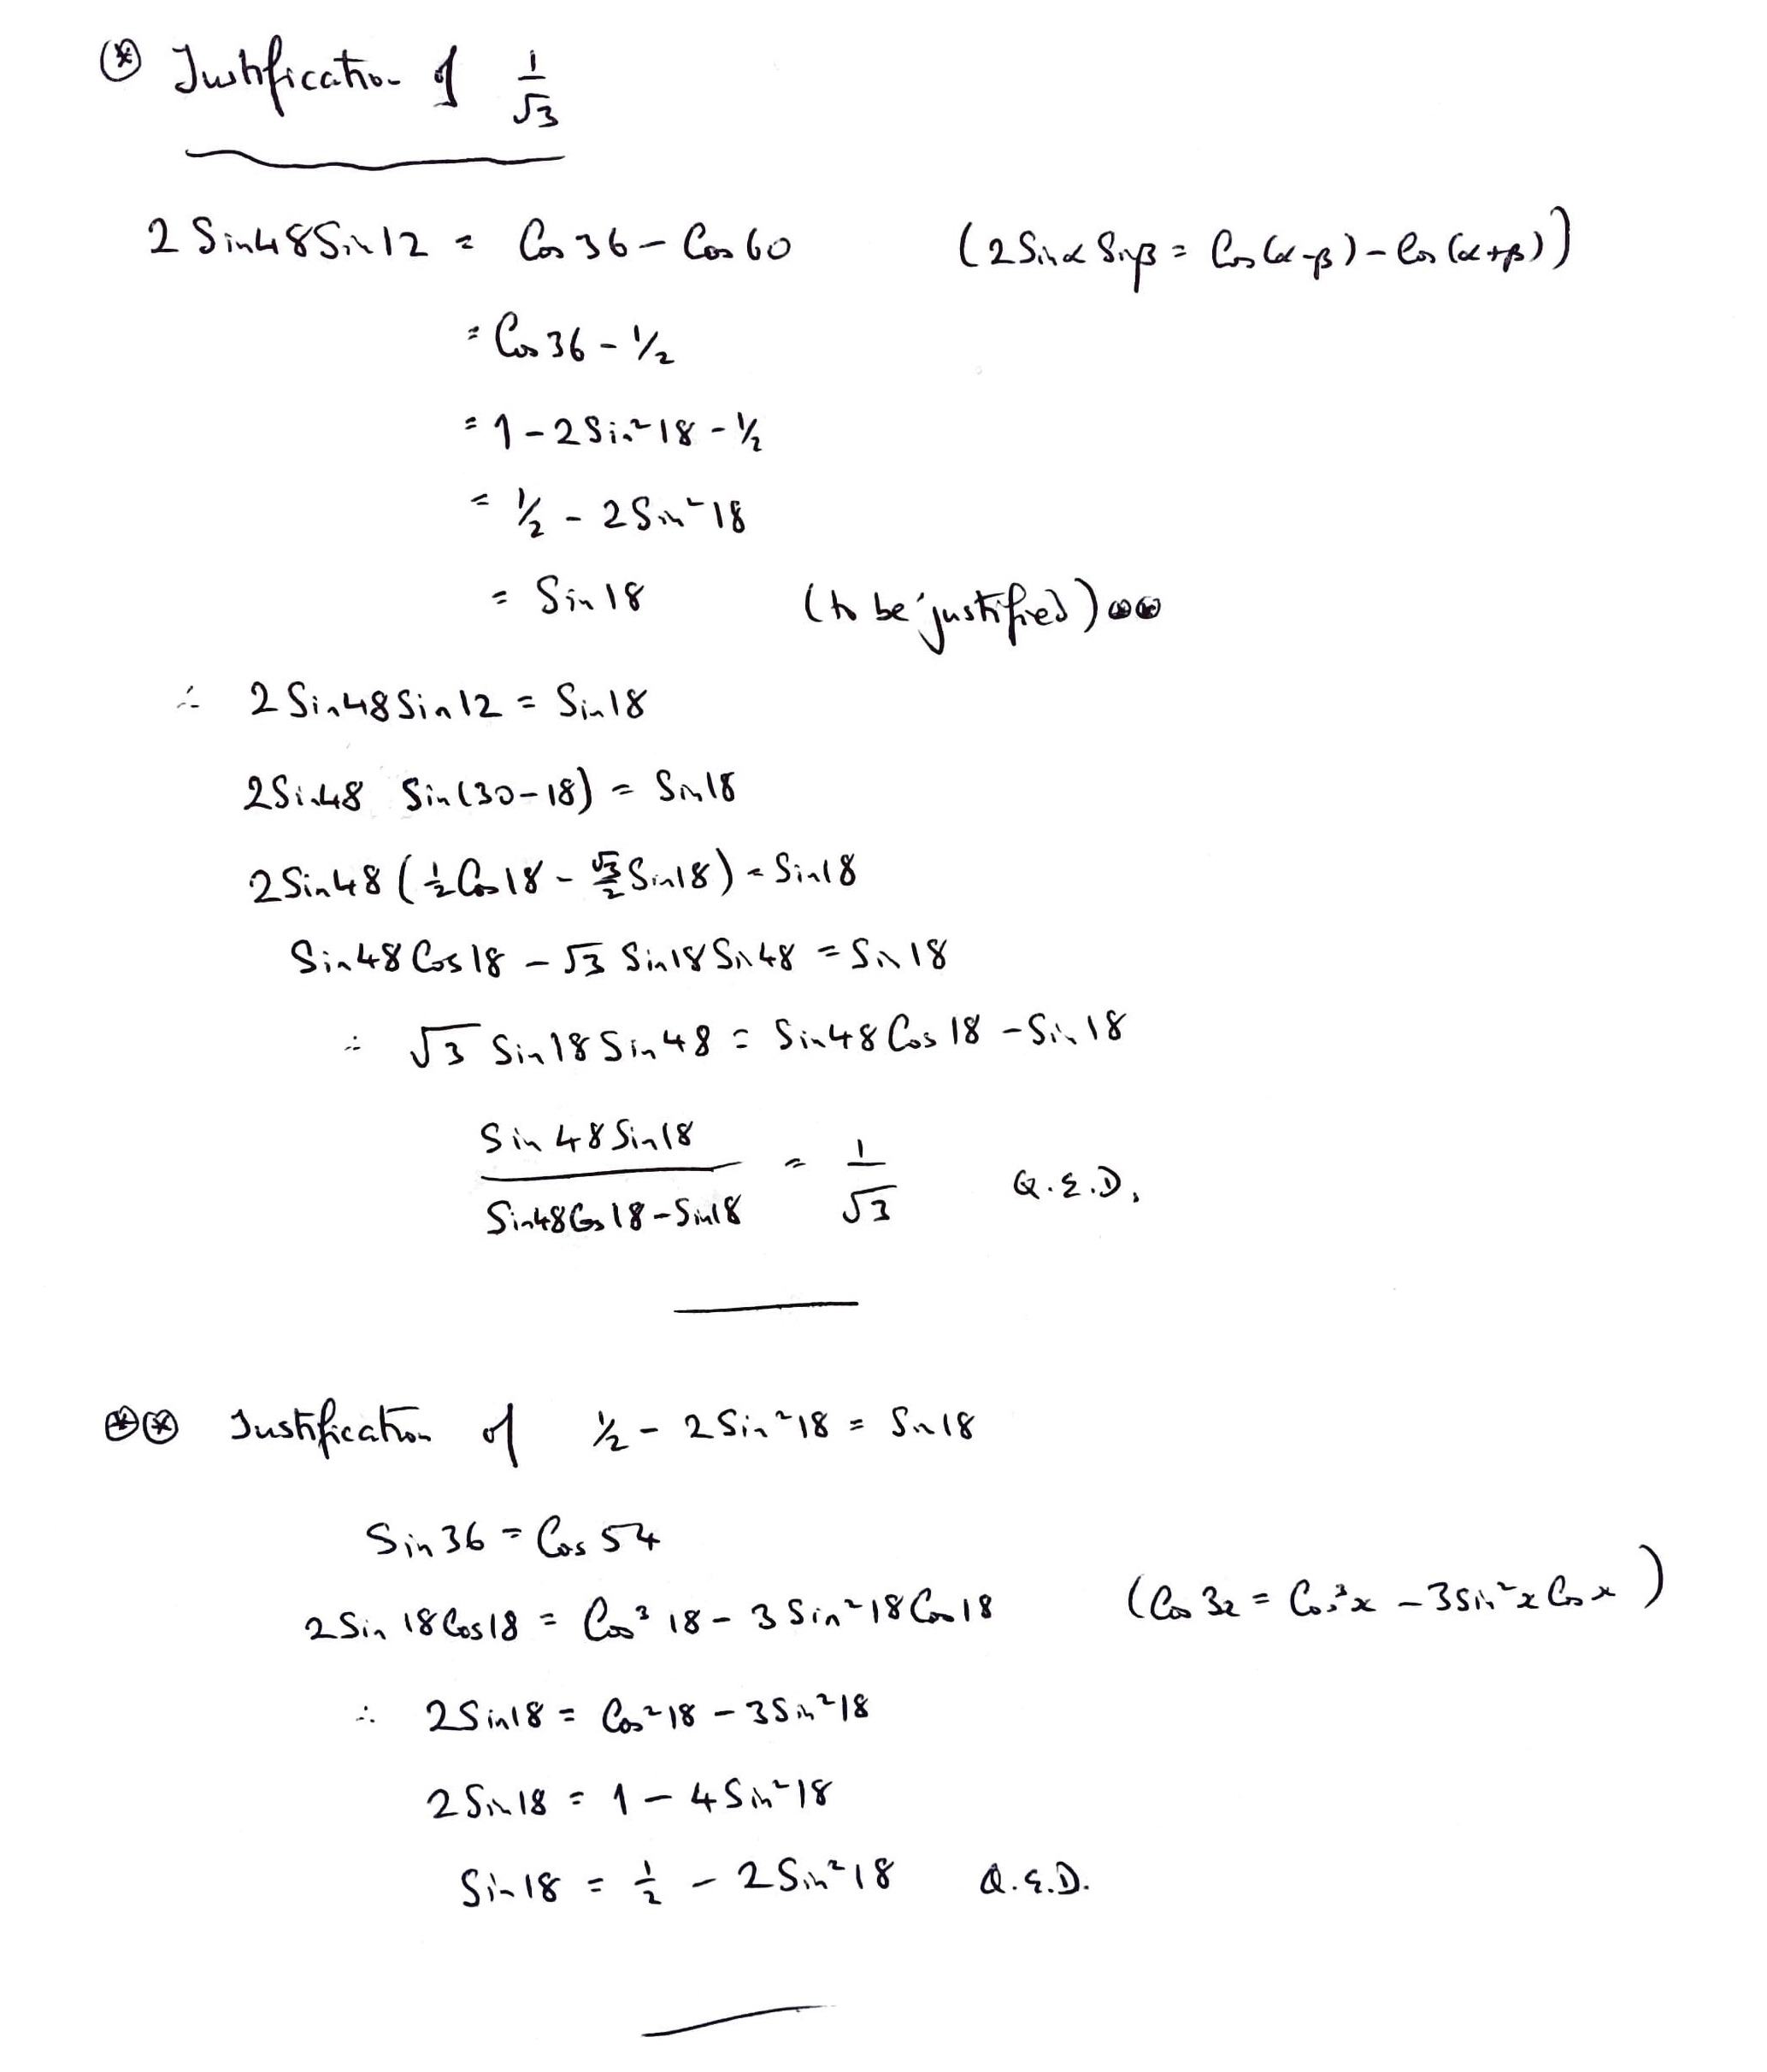 ⊛ Justification of 1/√3
2 Sin48 Sin12 = Cos 36 - Cos 60 (2 Sinα Sinβ = Cos(α-β) - Cos(α+β))
= Cos 36 - 1/2
= 1 - 2 Sin²18 - 1/2
= 1/2 - 2 Sin²18
= Sin 18 (to be justified) ⊛⊛
∴ 2 Sin48 Sin12 = Sin18
2Sin48 Sin(30-18) = Sin18
2Sin48 (1/2 Cos18 - √3/2 Sin18) = Sin18
Sin48 Cos18 - √3 Sin18 Sin48 = Sin18
∴ √3 Sin18 Sin48 = Sin48 Cos18 - Sin18
Sin48 Sin18 / Sin48 Cos18 - Sin18 = 1/√3 Q.E.D.
⊛⊛ Justification of 1/2 - 2 Sin²18 = Sin18
Sin 36 = Cos 54
2 Sin 18 Cos18 = Cos³ 18 - 3 Sin²18 Cos18 (Cos 3x = Cos³x - 3Sin²x Cosx)
∴ 2Sin18 = Cos²18 - 3Sin²18
2 Sin18 = 1 - 4 Sin²18
Sin18 = 1/2 - 2 Sin²18 Q.E.D.